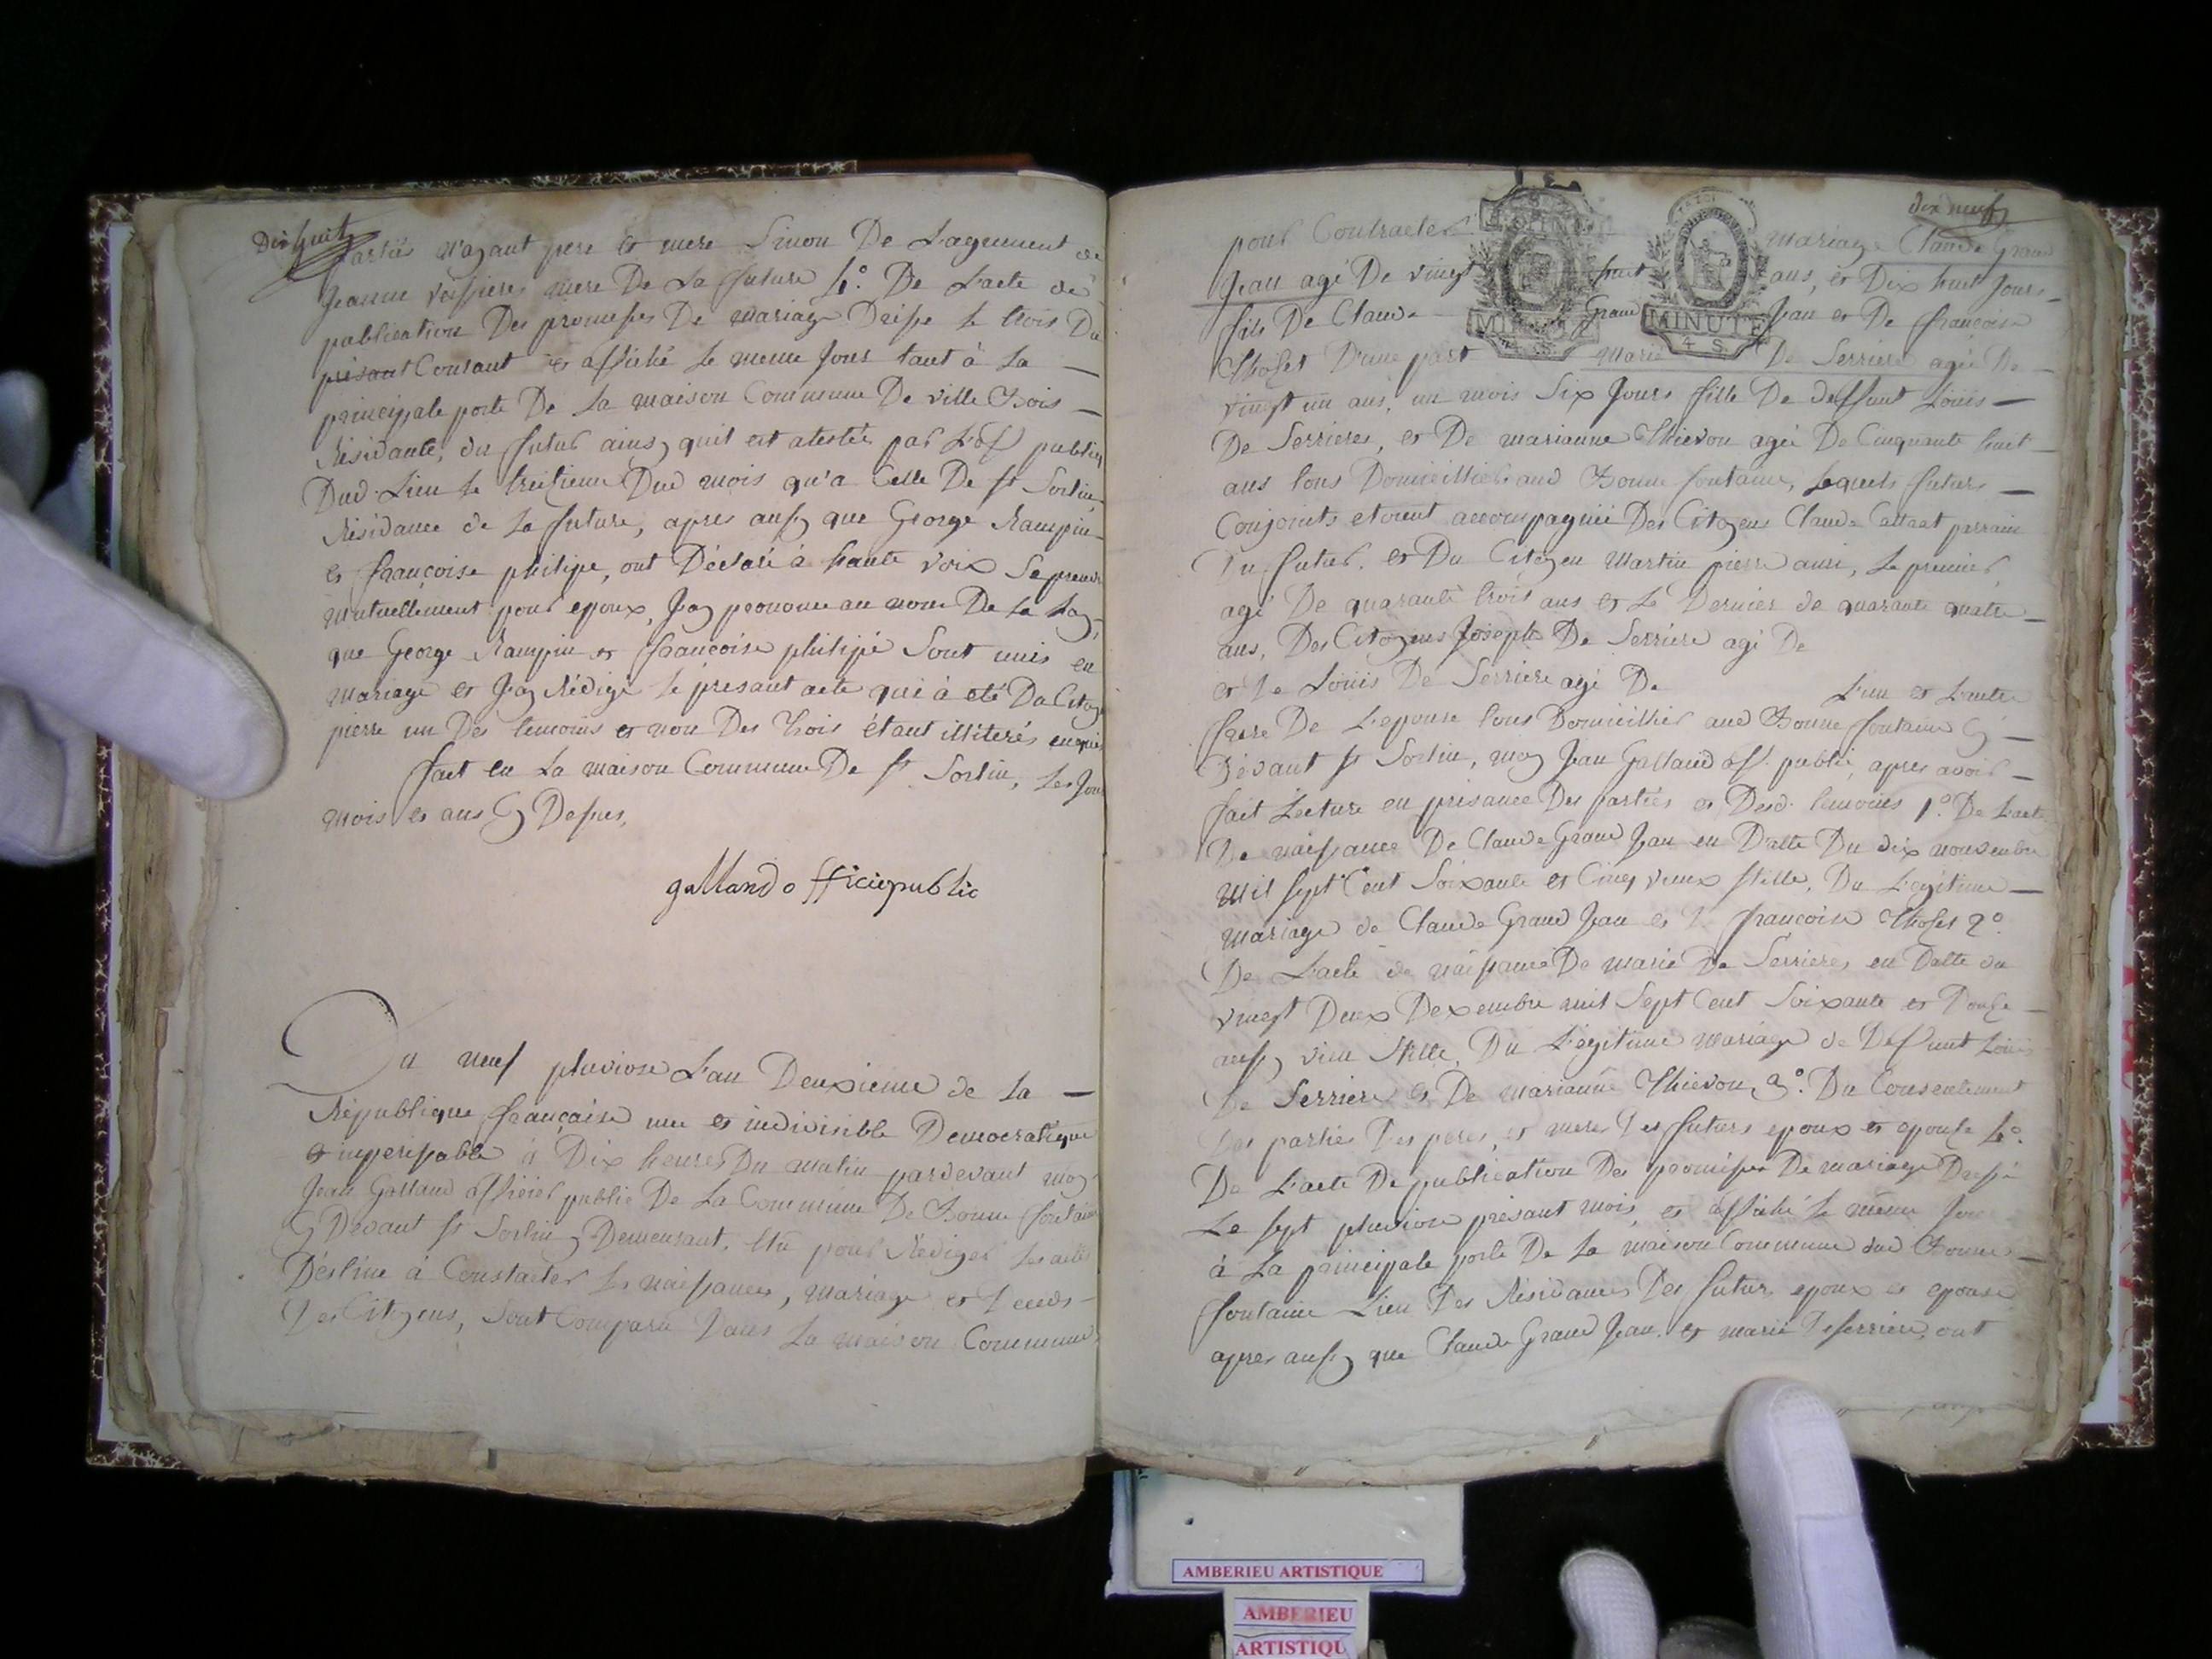 Dix huit
parties n'ayant pere et mere Sinon De L'agrement de
Jeanne mere De La future 4.° De L'acte de
publication Des promesses De mariage Dresse le trois Du
présant Courant et affiché le meme Jour tant à La —
principale porte De la maison Commune De ville Bois —
Résidante, du futur ainsy quil est atestée par L'off public
Dud. Lieu le treizieme Dud mois qu'a Celle De St Sorlin
Résidance de la future, apres aussy que George Rampin
et françoise philipe, ont Déclaré à haute voix Seprendre
mutuellement pour epoux, J'ay prononcé au nom De la Loy,
que George Rampin et françoise philipé Sont unis en
mariage et J'ay Rédigé le présant acte qui à eté Du Citoy
pierre un Des temoins et non Des trois étant illiterés enquis
fait en La maison Commune De St Sorlin, Les Jour
mois et ans Cy Dessus,
galland officiepublic
Du neuf pluviose L'an Deuxieme de La —
République française une et indivisible Democratique
et imperissable à Dix heures Du matin pardevant moy
Jean Galland officier public De La Commune De Bonne fontaine
Cy Devant St Sorlin y Demeurant, Elu pour Rédiger Les actes
Déstiné à Constater les naissances, mariage et Deceds
Des Citoyens, Sont Comparu Dans La maison Commune
dix neuf
pour Contracter mariage Claude Grand
Jean agé De vingt huit ans, et Dix huit Jours
fils De Claude Grand Jean et De françoise
D'une part Marie De Serriere agée De
MINUTE
MINUTE
4 S
vingt un ans, un mois Six Jours fille De deffunt Louis —
De Serrieres, et De marianne Thievon agée De Cinquante huit
ans tous Domicilliés aud Bonne fontaine, Lequels futurs —
Conjoints etoient accompagnié Des Citoyens Claude parrain
Du futur, et Du Citoyen Martin pierre ami, Le premier
agé De quarante trois ans et Le Dernier de quarante quatre —
ans, Des Citoyens Joseph De Serriére agé De
et De Louis De Serriere agé De L'un et L'autre
frere De L'epouse tous Domicilliés aud Bonne fontaine Cy —
Dévant St Sorlin, moy Jean Galland off. public, apres avoir —
fait Lecture en présance Des parties et Desd. temoins 1.° De L'acte
De naissance De Claude Grand Jean en Datte Du dix novembre
mil Sept Cent Soixante et Cinq vieux stille, Du Legitime —
mariage de Claude Grand Jean et De françoise 2°
De L'acte de naissance De marie De Serrieres en Datte du
vingt Deux Dexembre mil Sept Cent Soixante et Douze —
aussy vieu Stille, Du Légitime mariage de Deffunt Louis
De Serriere et De marianne Thievon, 3°. Du Consentement
Des parties Des peres, et meres Des futurs epoux et epouse 4°.
De L'acte De publication Des promesses De mariage Dressé
Le sept pluviose présant mois, et affiché le même Jour
à La principale porte De La maison Commune dud Bonne —
fontaine Lieu Des Résidances Des futurs epoux et epouse
apres aussy que Claude Grand Jean. et marie Deserriere, ont
AMBERIEU ARTISTIQUE
AMBERIEU
ARTISTIQU